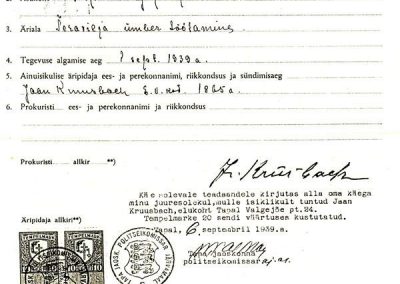 3. Äriala Teravilja ümber töötamine
4. Tegevuse algamise aeg 7 sept. 1939 a.
5. Ainuisikulise äripidaja ees- ja perekonnanimi, riikkondsus ja sündimisaeg
Jaan Kruusbach 1865 a.
6. Prokuristi ees- ja perekonnanimi ja riikkondsus
Prokuristi allkir **)
J. Kruusbach
Käesolevale teadaandele kirjutas alla oma käega
minu juuresolekul, mulle isiklikult tuntud Jaan
Kruusbach, elukoht Tapal Valgejõe pt.24.
Tempelmarke 20 sendi väärtuses kustutatud.
Äripidaja allkiri **)
Tapal, 6 septembril 1939.a.
Tapa jaoskonna
politseikomissar
TEMPELMARK TEMPELMARK
10 10
TAPA JAOSK. POLITSEIKOMISSAR